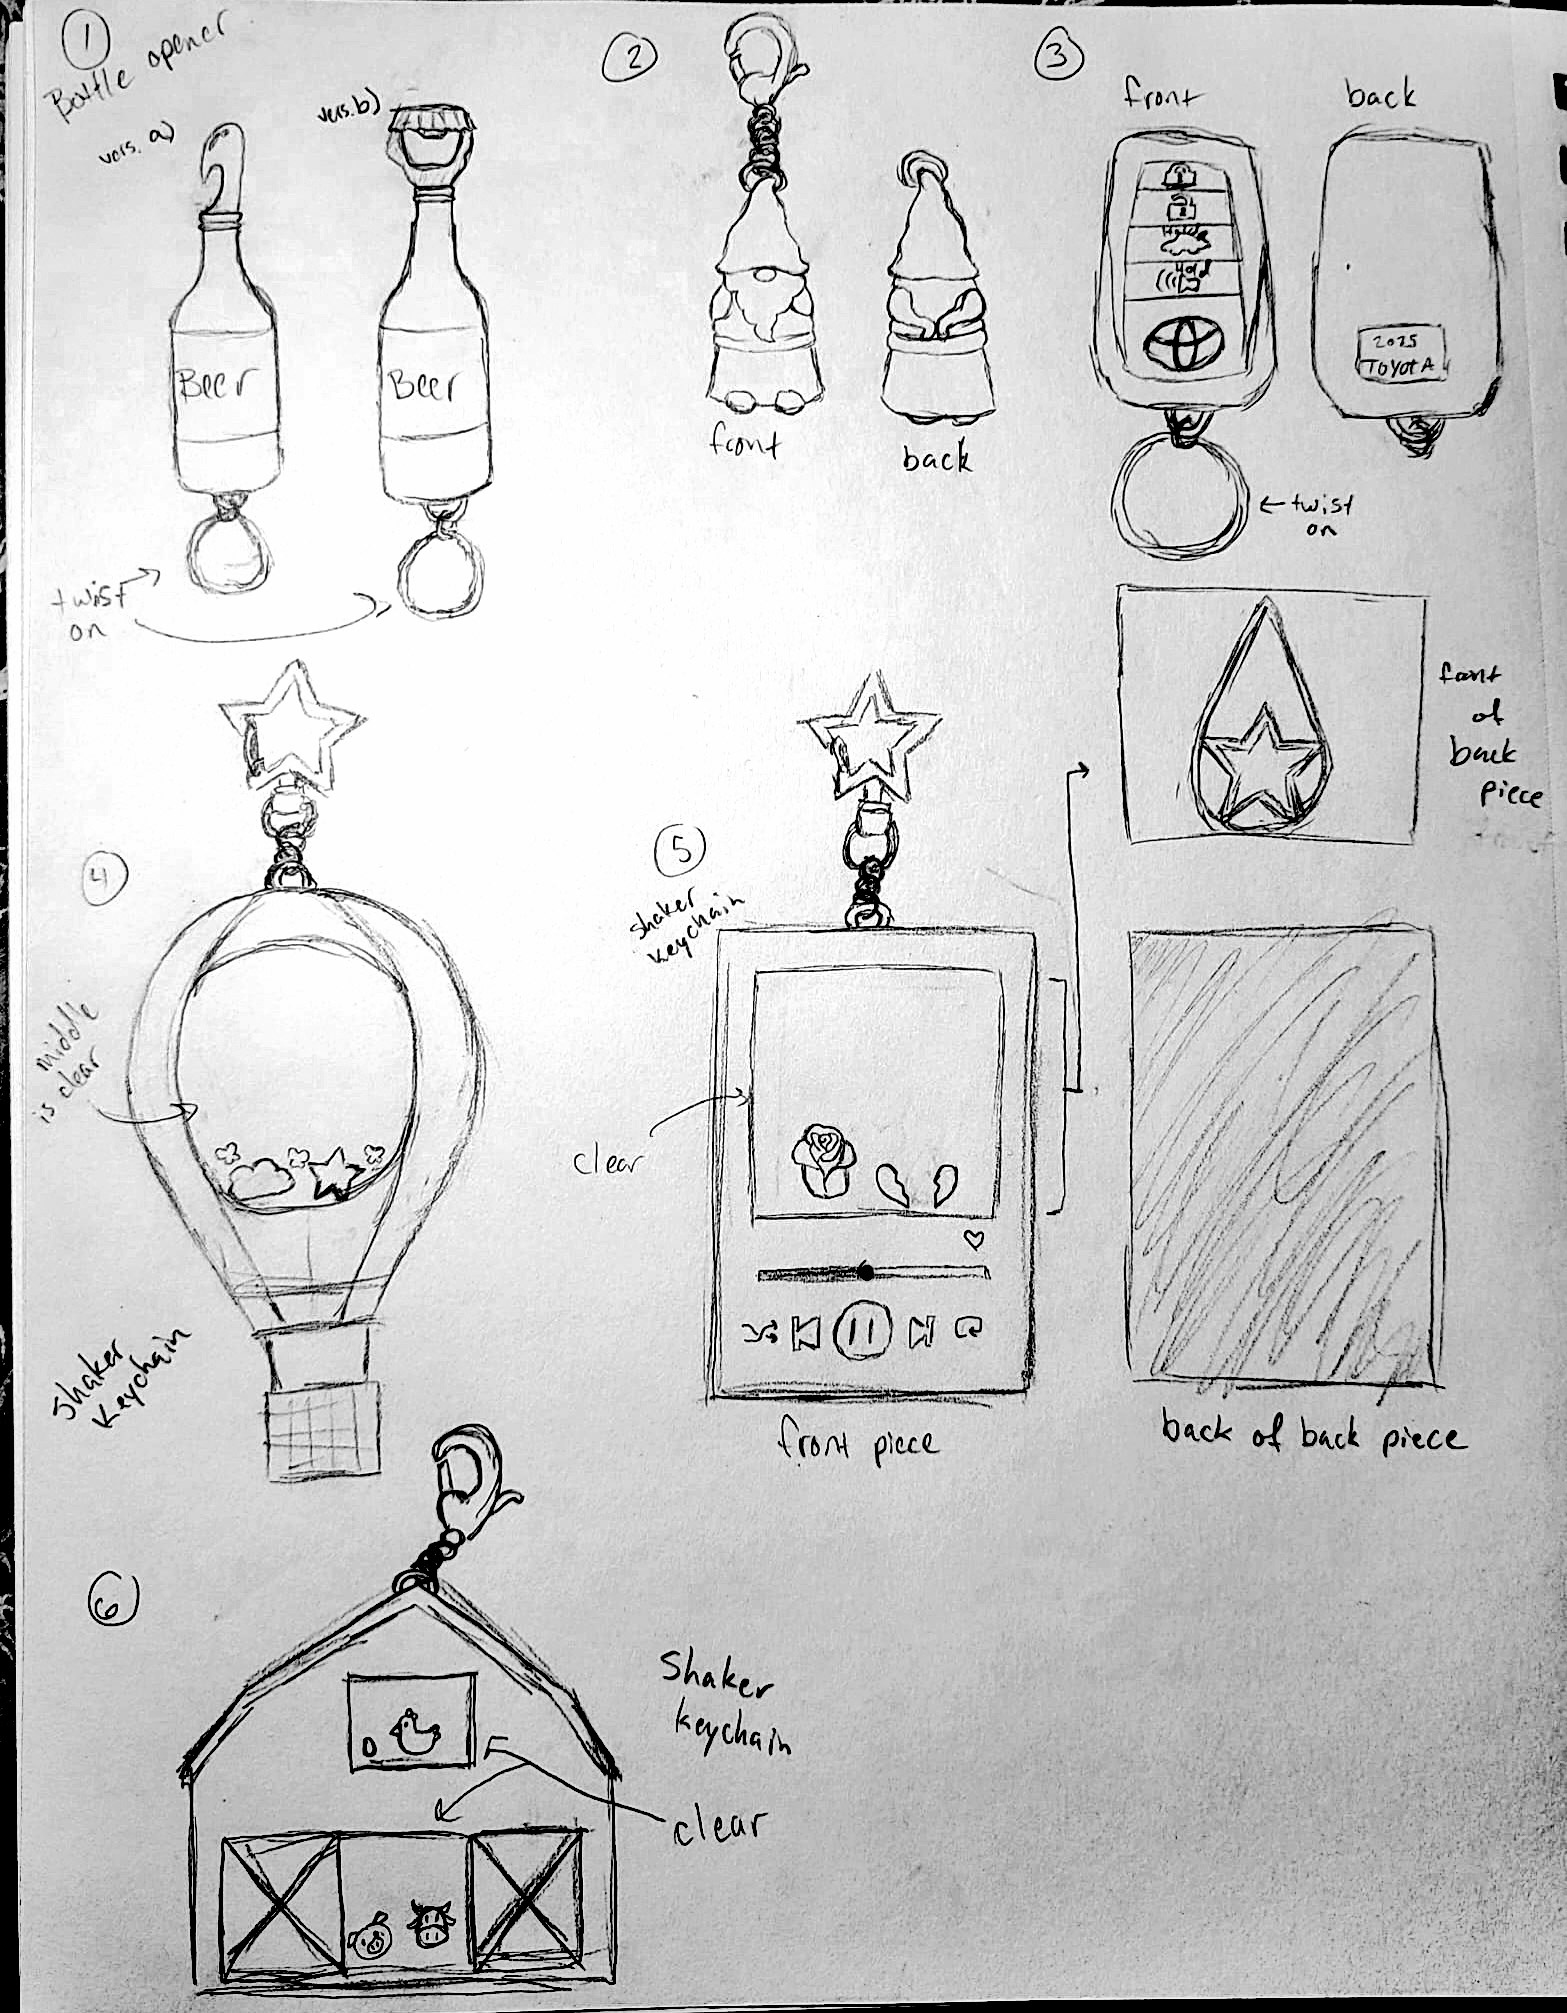 1
Bottle opener
vers. a)
vers. b)
Beer
Beer
twist
on
2
front
back
3
front
back
Hold
Hold
2025
TOYOTA
←twist
on
4
middle
is clear
Shaker
Keychain
5
shaker
keychain
clear
front piece
front
of
back
piece
back of back piece
6
Shaker
keychain
clear